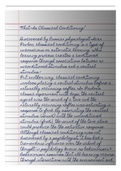 What is Classical Conditioning?
Discovered by Russian physiologist Ivan
Pavlov, classical conditioning is a type of
unconscious or automatic learning. This
learning process creates a conditioned
response through associations between an
unconditioned stimulus and a neutral
stimulus.
Put simply, classical conditioning
involves placing a neutral stimulus before a
naturally occurring reflex.
experiment with dogs, the neutral
signal was the sound of a tone and the
naturally occurring reflex was salivating in
response to food. By associating the neutral
stimulus (sound) with the unconditioned
stimulus (food), the sound of the tone alone
could produce the salivation response.
Although classical conditioning was not
discovered by a psychologist, it has had a
tremendous influence over the school of
thought in psychology known as behaviorism.
Behaviorism assumes that all learning occurs
through interactions with the environment and